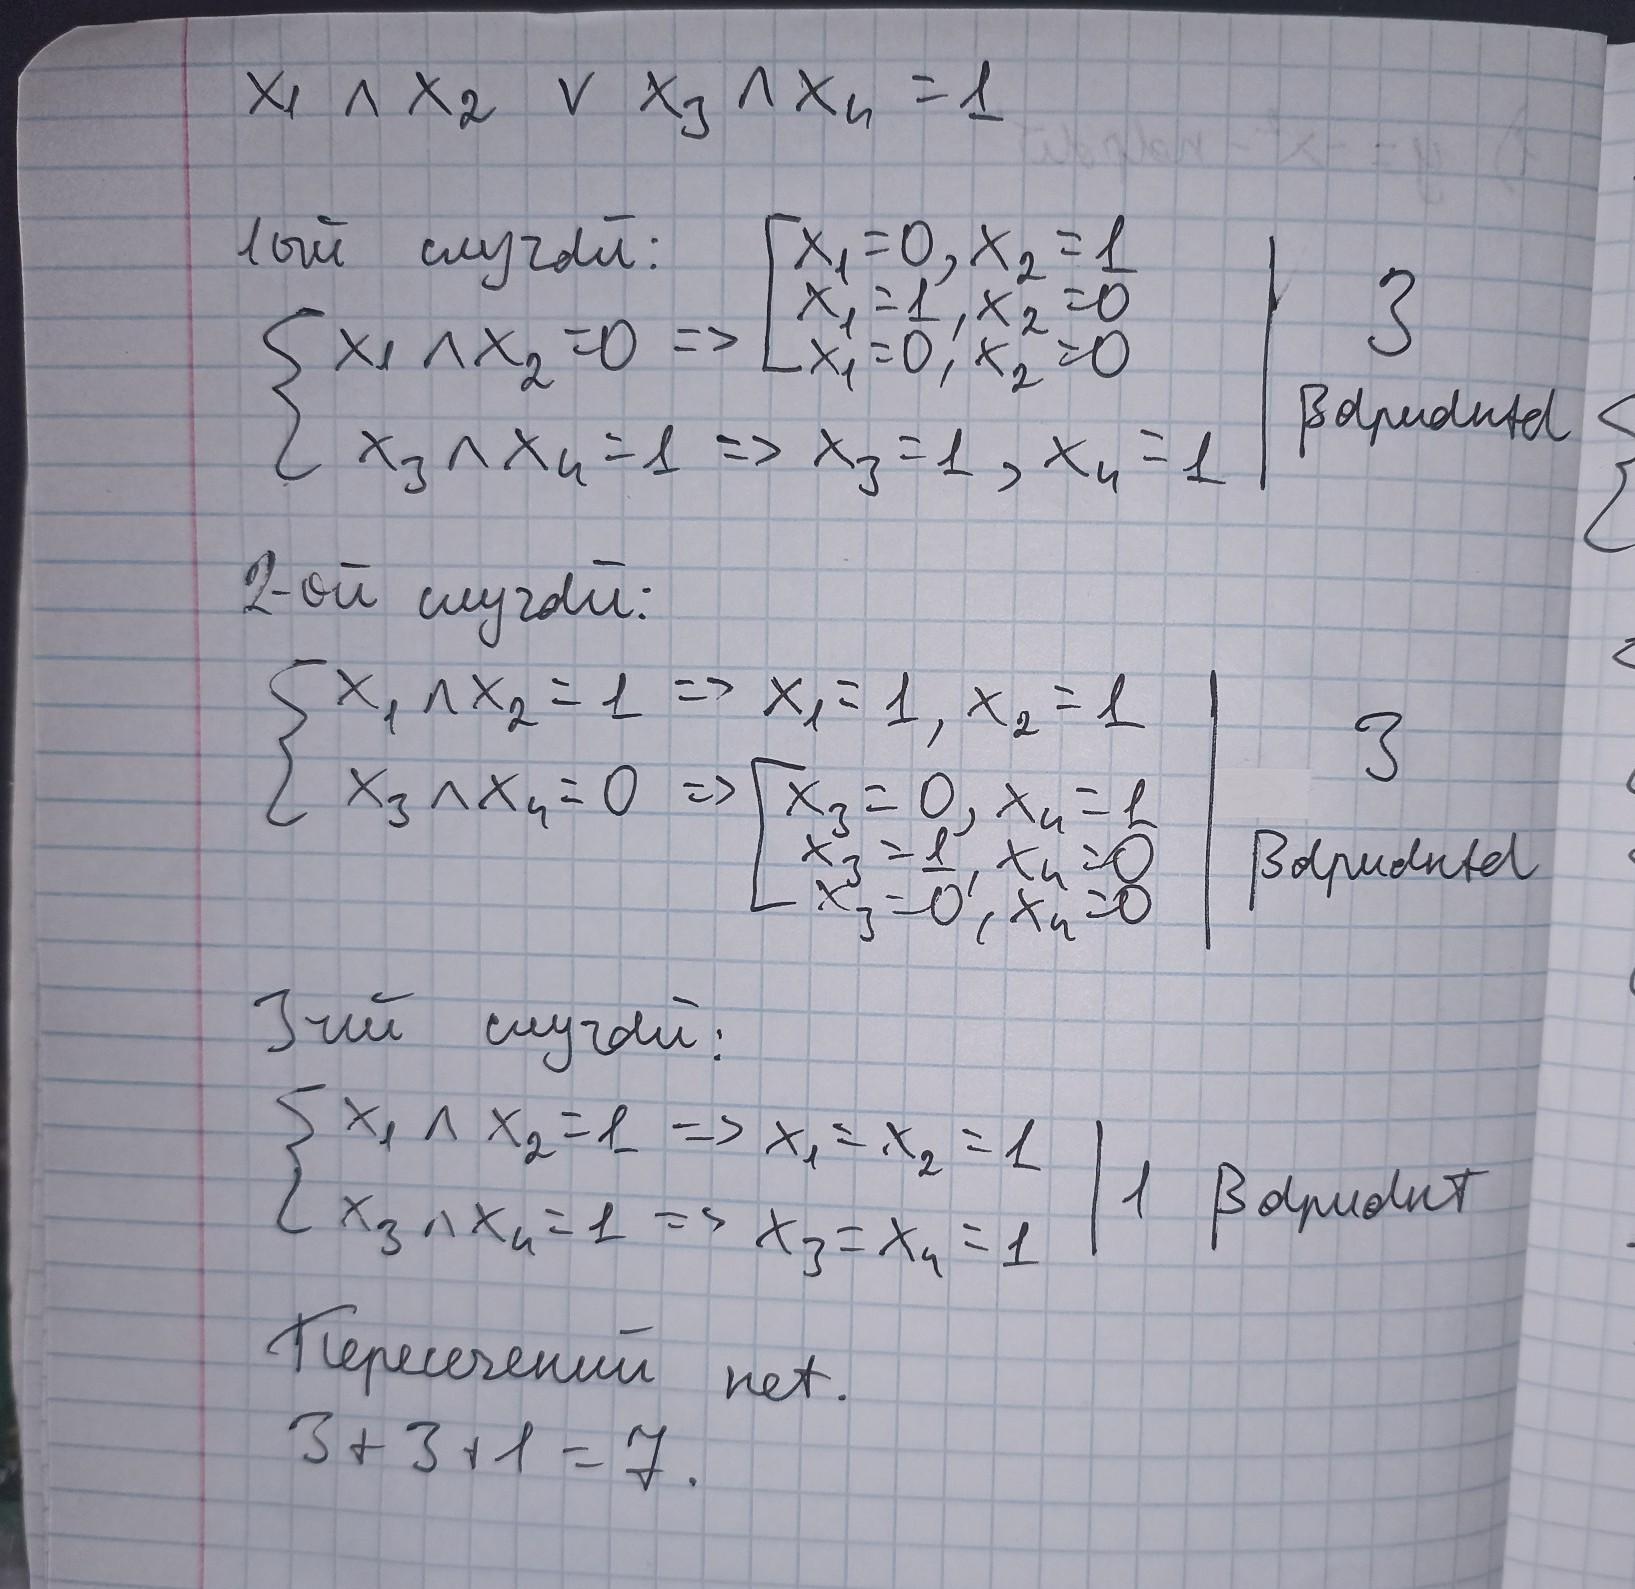 x₁ ∧ x₂ ∨ x₃ ∧ x₄ = 1
1ый случай:
{ x₁ ∧ x₂ = 0 => [ x₁ = 0, x₂ = 1
x₁ = 1, x₂ = 0
x₁ = 0, x₂ = 0
x₃ ∧ x₄ = 1 => x₃ = 1, x₄ = 1
| 3
варианта
2-ой случай:
{ x₁ ∧ x₂ = 1 => x₁ = 1, x₂ = 1
x₃ ∧ x₄ = 0 => [ x₃ = 0, x₄ = 1
x₃ = 1, x₄ = 0
x₃ = 0, x₄ = 0
| 3
варианта
3-ий случай:
{ x₁ ∧ x₂ = 1 => x₁ = x₂ = 1
x₃ ∧ x₄ = 1 => x₃ = x₄ = 1
| 1 вариант
Пересечений нет.
3 + 3 + 1 = 7.